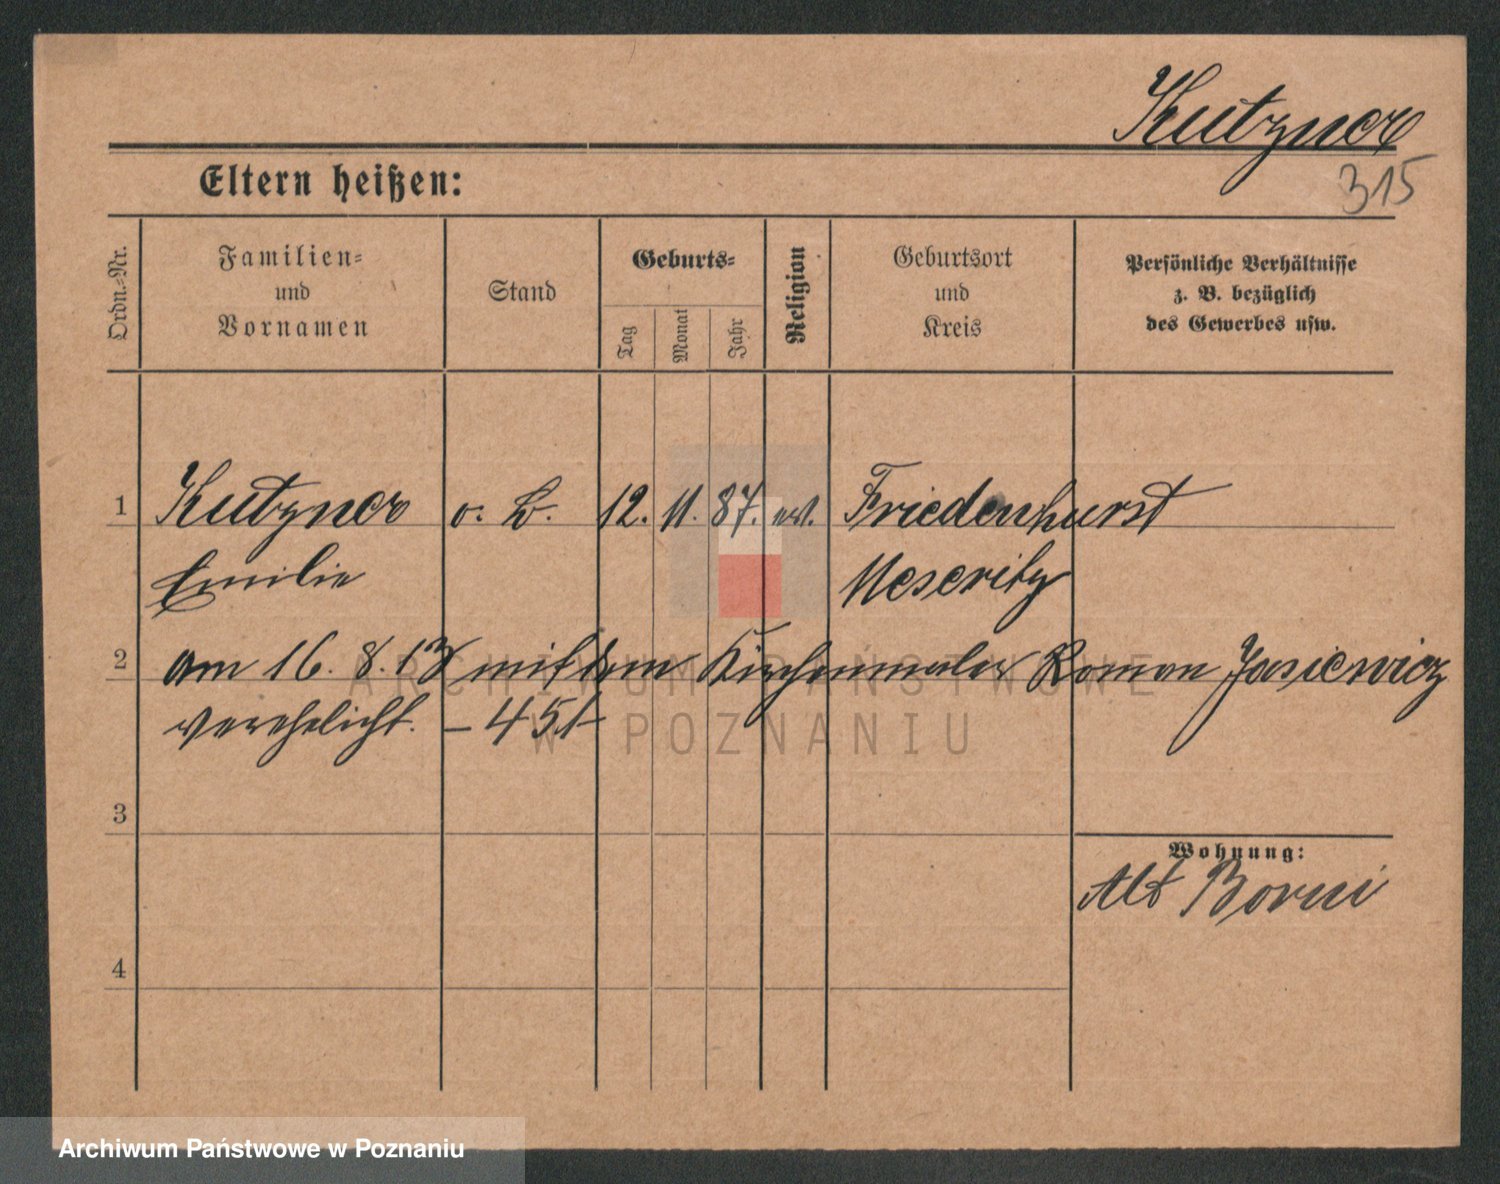 Kutzner
315
Eltern heißen:
Ordn.=Nr.
Familien=
und
Vornamen
Stand
Geburts=
Tag
Monat
Jahr
Religion
Geburtsort
und
Kreis
Persönliche Verhältnisse
z. B. bezüglich
des Gewerbes usw.
1 Kutzner o. B. 12. 11. 87. ev. Friedenhurst
Emilie Meseritz
2 am 16. 8. 13 mit dem Kirchenmaler Roman Jasiewicz
verehelicht. – 451–
3
Wohnung:
Alt Borui
4
ARCHIWUM PAŃSTWOWE
W POZNANIU
Archiwum Państwowe w Poznaniu